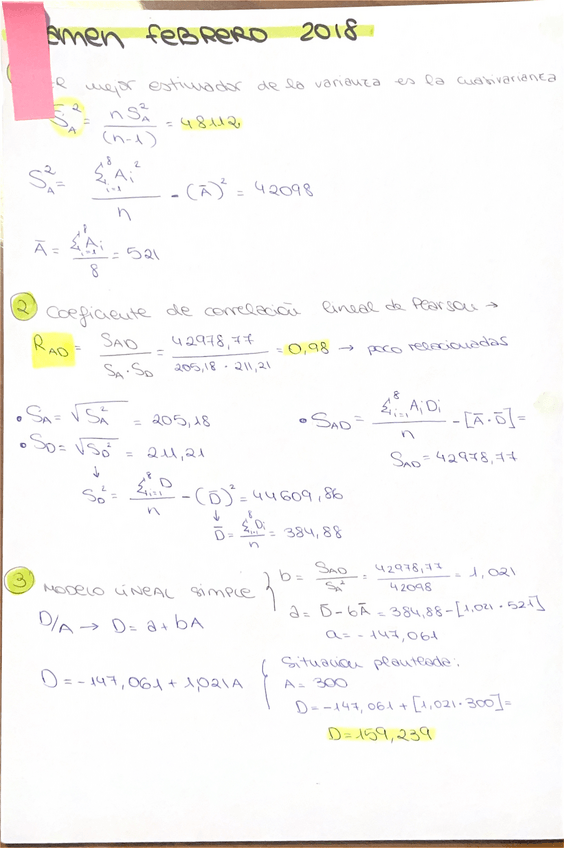 amen FEBRERO 2018
mejor estimador de la varianza es la cuasivarianza
S_A^2 = n S_A^2 / (n-1) = 48112
S_A^2 = Σ_{i=1}^8 A_i^2 / n - (Ā)^2 = 42098
Ā = Σ_{i=1}^8 A_i / 8 = 521
2 Coeficiente de correlación lineal de Pearson →
R_AD = S_AD / S_A · S_D = 42978,77 / 205,18 · 211,21 = 0,98 → poco relacionadas
• S_A = √S_A^2 = 205,18
• S_D = √S_D^2 = 211,21
↓
S_D^2 = Σ_{i=1}^8 D / n - (D̄)^2 = 44609,86
↓
D̄ = Σ^8 D_i / n = 384,88
• S_AD = Σ_{i=1}^8 A_i D_i / n - [Ā · D̄] =
S_AD = 42978,77
3 MODELO LINEAL SIMPLE
D/A → D = a + bA
b = S_AD / S_A^2 = 42978,77 / 42098 = 1,021
a = D̄ - bĀ = 384,88 - [1,021 · 521]
a = -147,061
D = -147,061 + 1,021A
Situación planteada:
A = 300
D = -147,061 + [1,021 · 300] =
D = 159,239